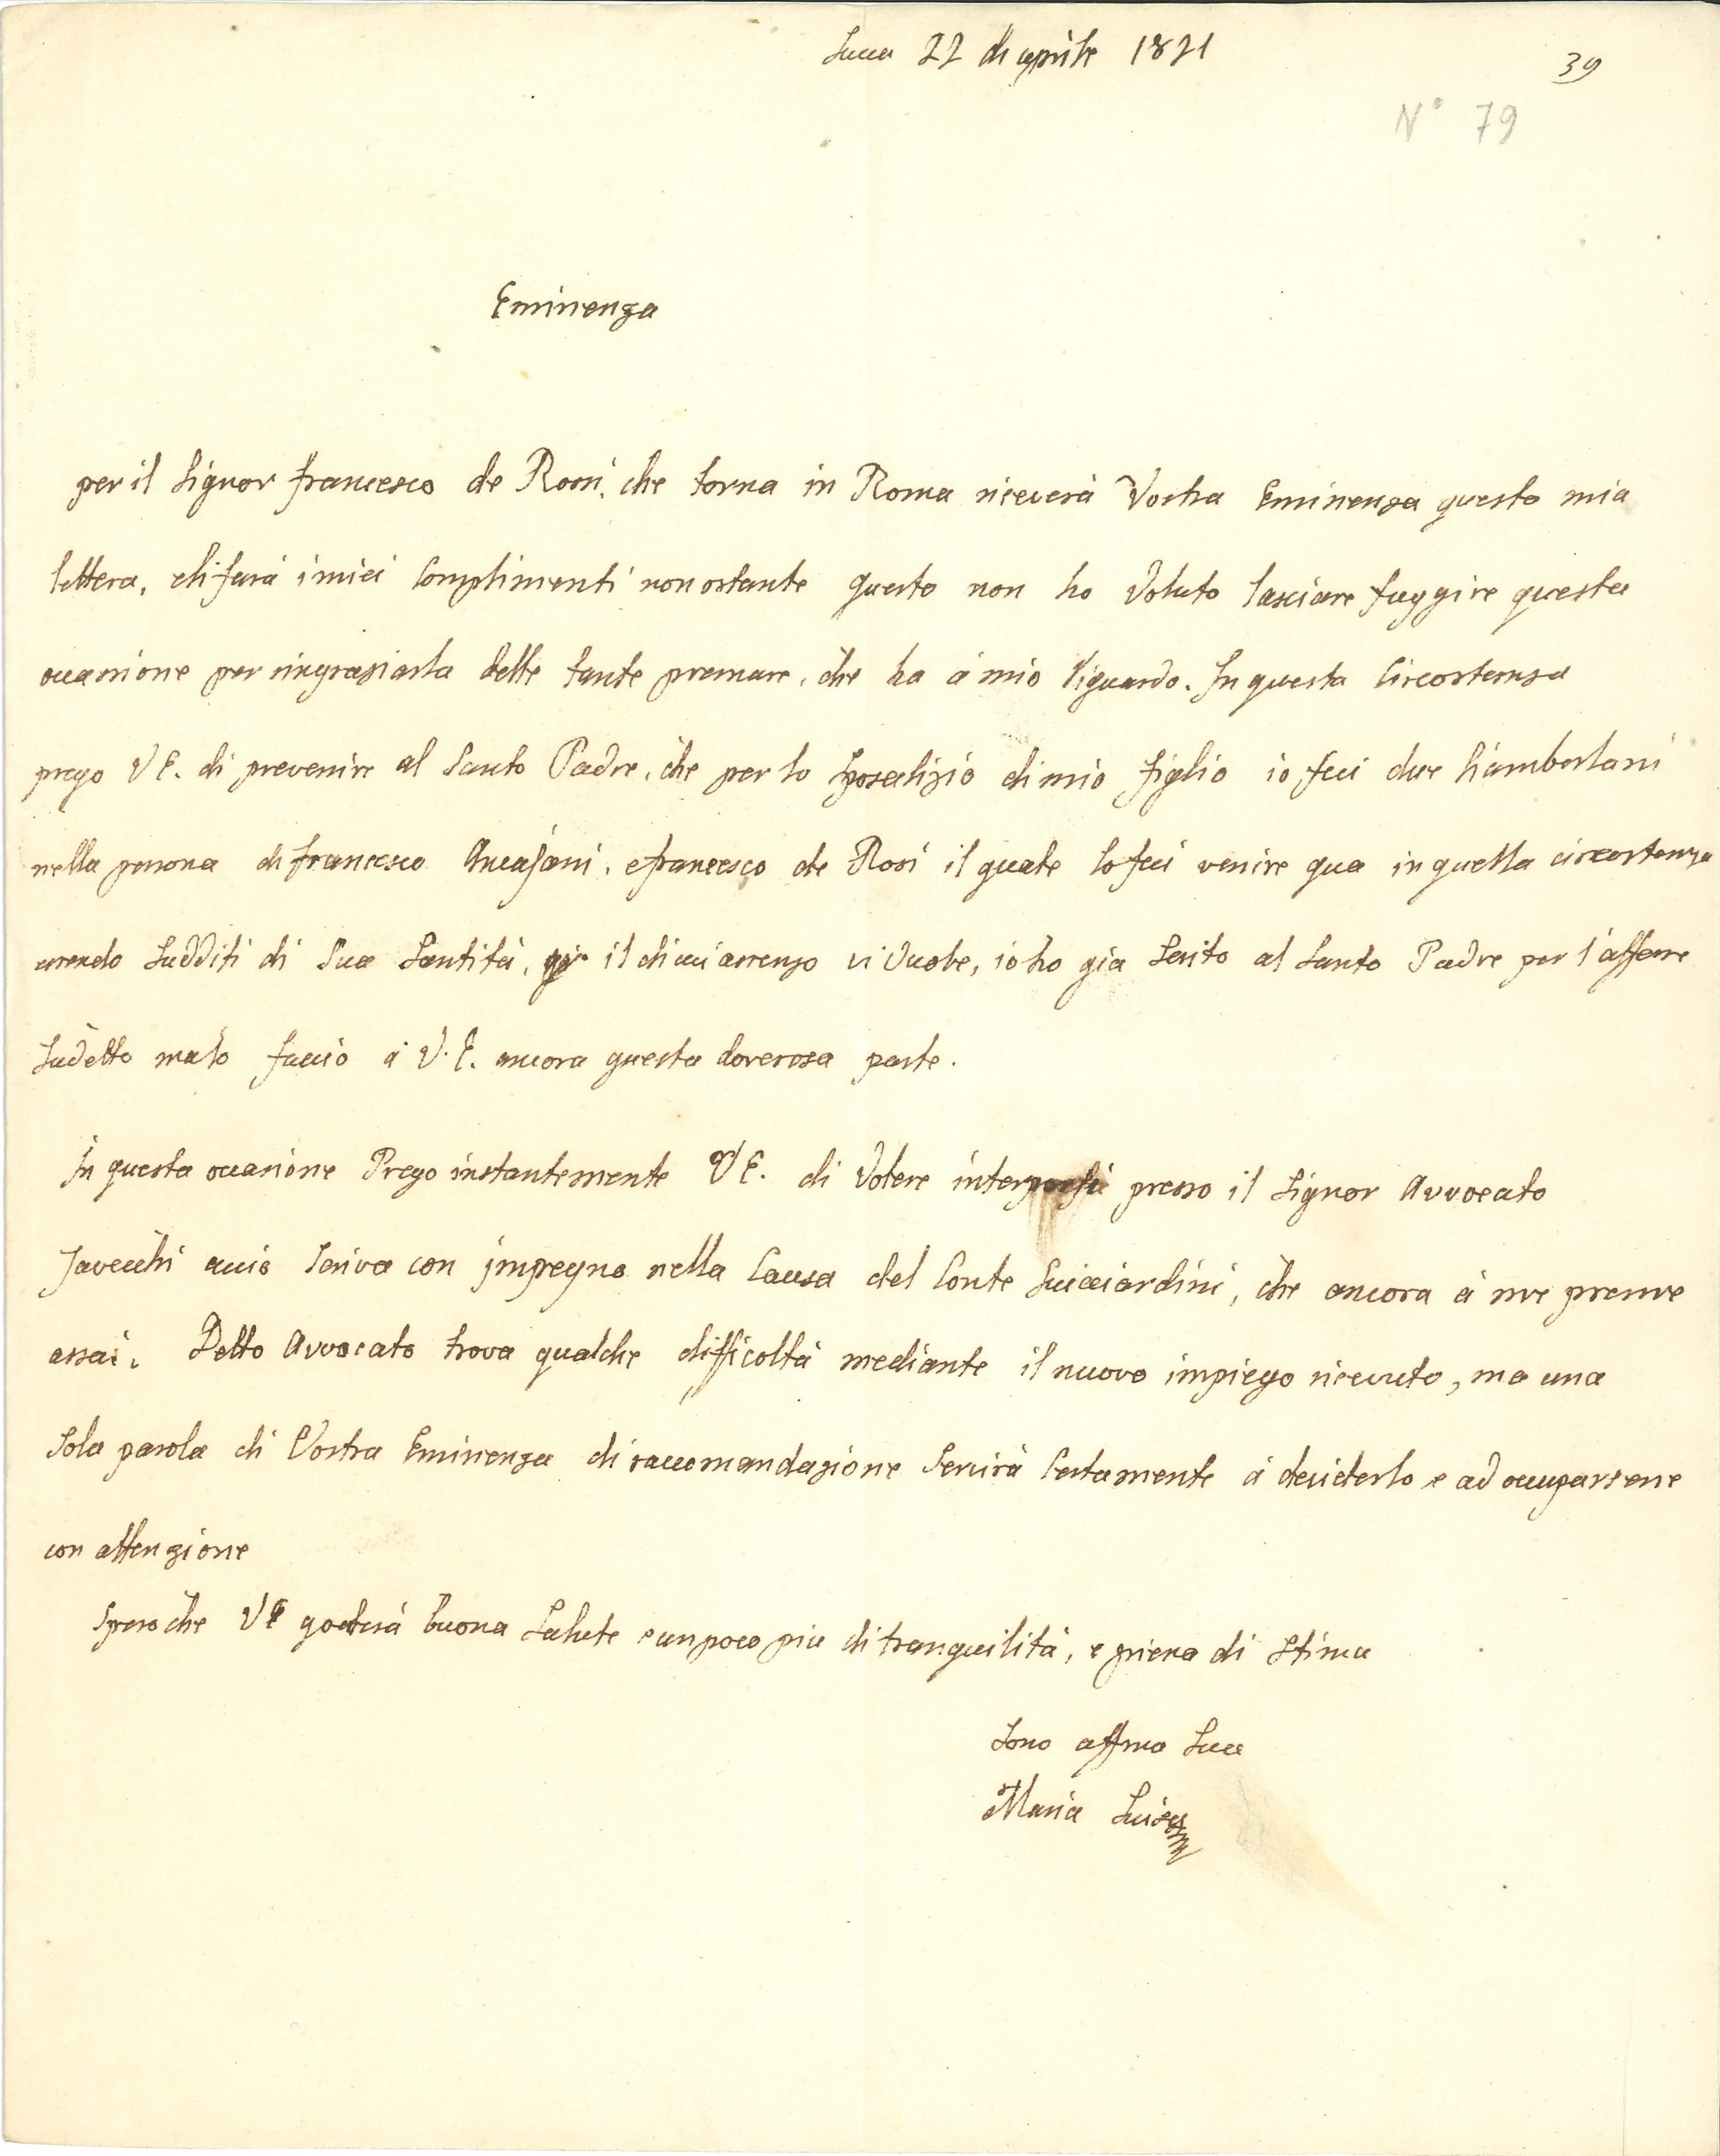 Lucca 22 di aprile 1821
39
N° 79
Eminenza
per il Signor francesco de Rossi, che torna in Roma riceverà Vostra Eminenza questa mia
lettera, eli farà i miei Complimenti nonostante questo non ho voluto lasciare fuggire questa
occasione per ringraziarla delle tante premure, che ha à mio Riguardo. In questa Circostanza
prego V E. di prevenire al Santo Padre, che per lo Sposalizio di mio figlio io feci due Ciamberlani
nella persona di francesco Ancajani, e francesco de Rosi il quale lo feci venire qua in quella circostanza
essendo Sudditi di Sua Santità, il di cui assenzo vi vuole, io ho già Scrito al Santo Padre per l'affare
Sudetto ma lo faccio à V. E. ancora questa doverosa parte.
In questa occasione Prego instantemente V E. di Volere presso il Signor Avvocato
Javecchi acciò Scriva con impegno nella Causa del Conte Guicciardini, che ancora à me preme
assai. Detto Avvocato trova qualche difficoltà mediante il nuovo impiego ricevuto, ma una
Sola parola di Vostra Eminenza di raccomandazione Servirà Certamente à deciderlo e ad occuparsene
con attenzione
Spero che V E goderà buona Salute e un poco piu di tranquilità, e piena di Stima
Sono affma Sua
Maria Luisa